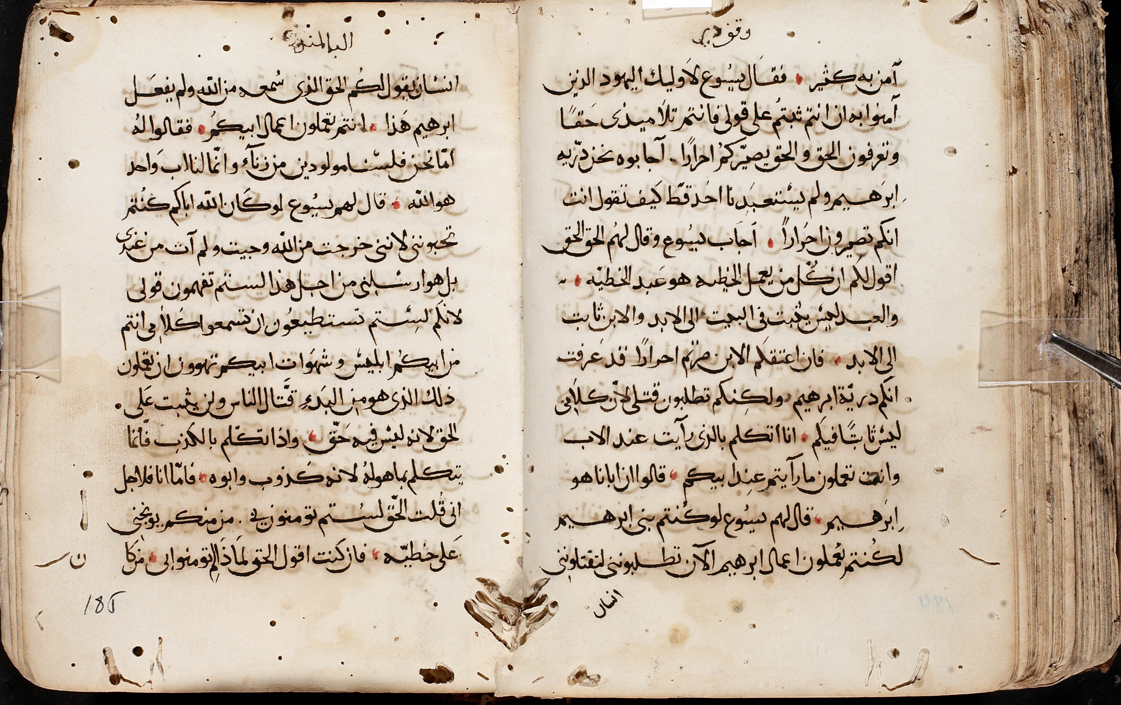 وقف دير
آمن به كثير فقال يسوع لاوليك اليهود الذين
آمنوا به ان انتم ثبتم على قولى فانتم تلاميذى حقًا
وتعرفون الحق والحق يصيّركم احرارًا. آجابوه نحن ذرّية
ابرهيم ولم يستعبدنا احد قطّ كيف تقول انت
انكم تصيرون احرارًا أجاب يسوع وقال لهم الحق الحق
اقول لكم ان كل من يعمل الخطيه هو عبد الخطيّه
والعبد ليس يثبت فى البيت الى الابد والابن ثابت
الى الابد فان اعتقكم الابن صرتم احرارًا قد عرفت
انكم ذريّة ابرهيم ولكنكم تطلبون قتلى لان كلامى
ليس ثابتًا فيكم انا اتكلم بالذى رآيت عند الاب
وانتم تعملون ما رآيتم عند ابيكم قالوا ان ابانا هو
ابرهيم قال لهم يسوع لو كنتم بنى ابرهيم
لكنتم تعملون اعمال ابرهيم الآن تطلبوننى لتقتلوننى
انسان
انسان يقول لكم الحق الذى سُمعه من الله ولم يفعل
ابرهيم هذا انتم تعملون اعمال ابيكم فقالوا لهُ
أمّا نحن فلسنا مولودين من زناءٍ وانّما لنا اب واحد
هو الله قال لهم يسوع لو كان الله اباكم كنتم
تحبوننى لاننى خرجت من الله وجيت ولم آت من عندى
بل هو ارسلنى من اجل هذا لستم تفهمون قولى
لانكم لستم تستطيعون ان تسمعوا كلامى انتم
من ابيكم ابليس وشهوات ابيكم تهوون ان تعملون
ذلك الذى هو من البدءِ قتَّال الناس ولن يثبت على
الحق لانه ليس فيه حَقّ واذا تكلم بالكذب فآنما
يتكلم بما هو لهُ لانه كذوب وابوه فآمّا انا فلاجل
انى قُلت الحقّ لستم تومنون بى. من منكم يوبخنى
على خطيّه فان كنت اقول الحق لماذا لم تومنوا بى من كا
185